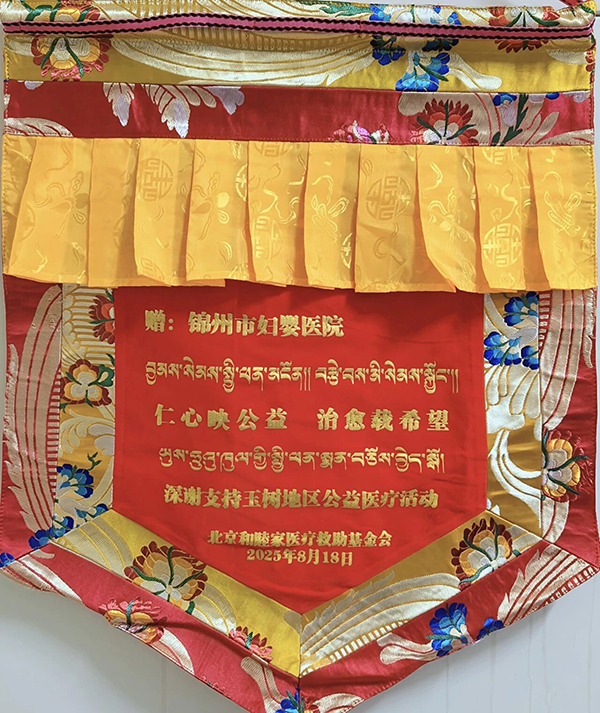 赠：锦州市妇婴医院
བྱམས་སེམས་སྤྱི་ཕན་མངོན།། བརྩེ་བས་མི་སེམས་སྐྱོང་།།
仁心映公益 治愈载希望
ཡུས་ཧྲུའུ་ཁུལ་གྱི་སྤྱི་ཕན་སྨན་བཅོས་བྱེད་སྒོ།
深谢支持玉树地区公益医疗活动
北京和睦家医疗救助基金会
2025年8月18日